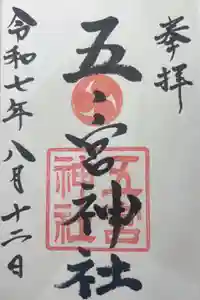 奉拝
五宮神社
五宮
神社
令和七年八月十二日